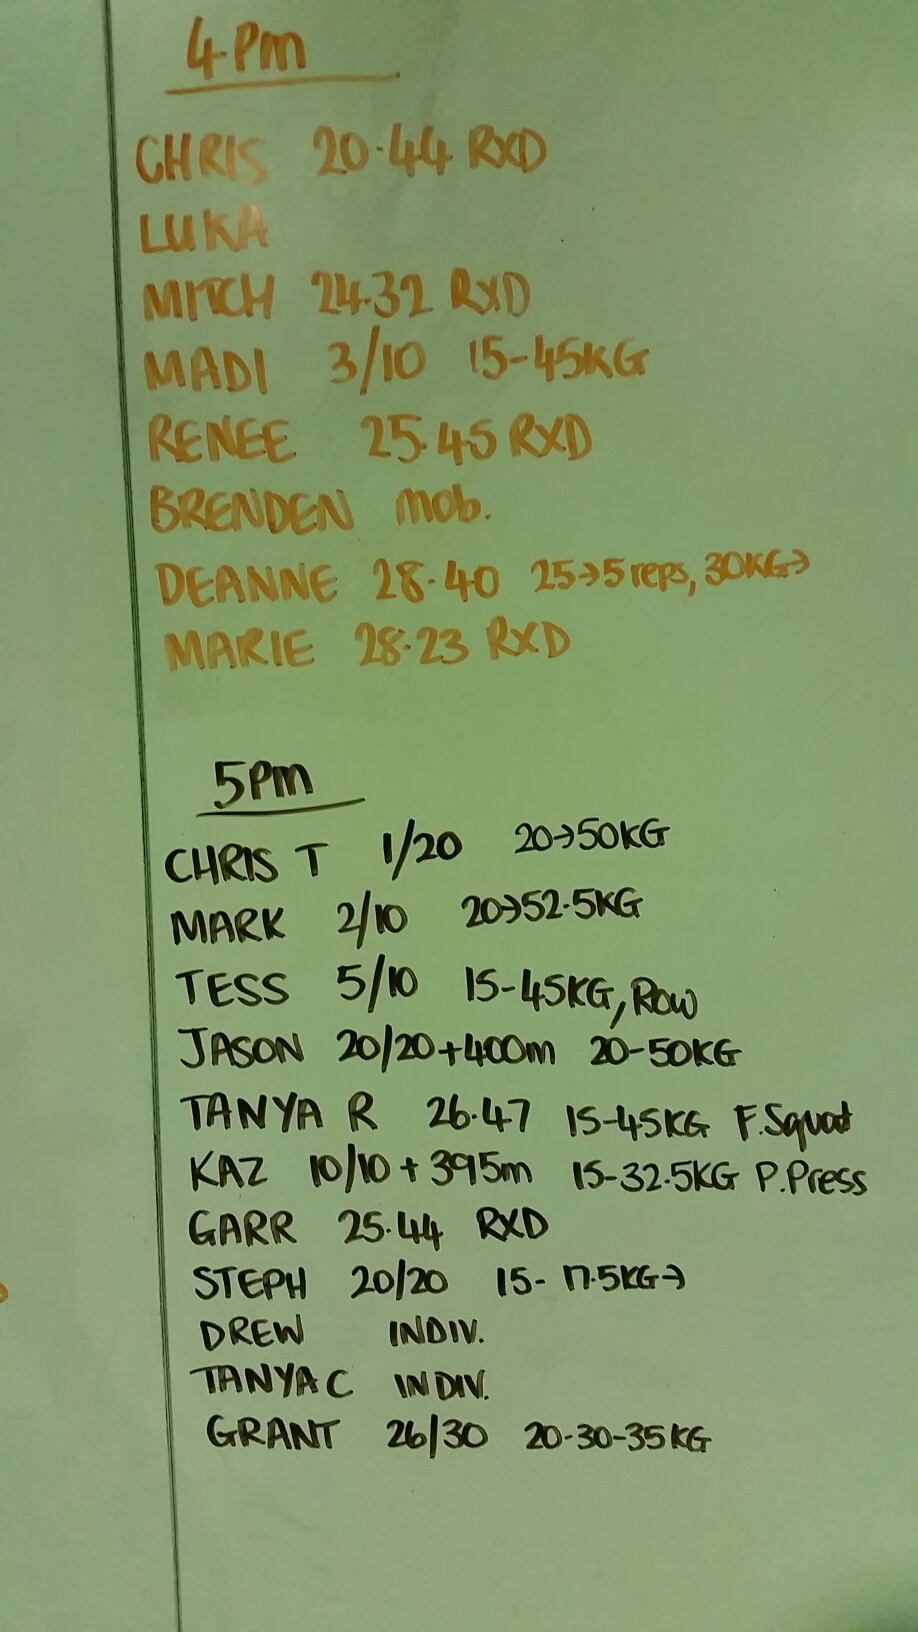 4.Pm
CHRIS 20.44 RXD
LUKA
MITCH 24.32 RXD
MADI 3/10 15-45KG
RENEE 25.45 RXD
BRENDEN mob.
DEANNE 28.40 25→5 reps, 30KG→
MARIE 28.23 RXD
5Pm
CHRIS T 1/20 20→50KG
MARK 2/10 20→52.5KG
TESS 5/10 15-45KG, Row
JASON 20/20+400m 20-50KG
TANYA R 26.47 15-45KG F.Squat
KAZ 10/10 + 395m 15-32.5KG P.Press
GARR 25.44 RXD
STEPH 20/20 15- 17.5KG→
DREW INDIV.
TANYA C INDIV.
GRANT 26/30 20-30-35KG